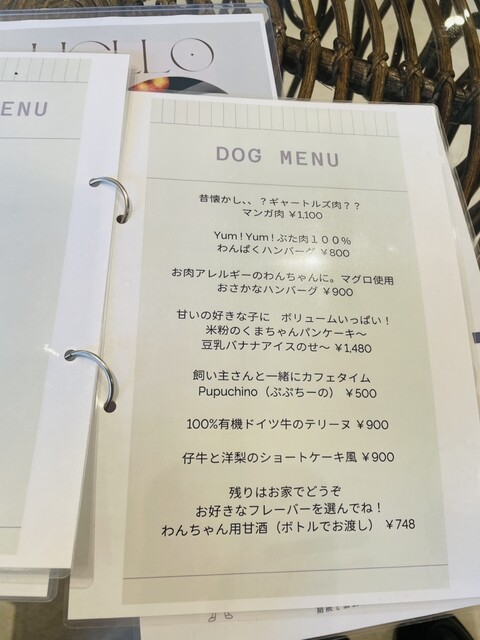 HOLLO
ENU
DOG MENU
昔懐かし、、？ギャートルズ肉？？
マンガ肉 ¥1,100
Yum ! Yum ! ぶた肉１００％
わんぱくハンバーグ ¥800
お肉アレルギーのわんちゃんに。マグロ使用
おさかなハンバーグ ¥900
甘いの好きな子に　ボリュームいっぱい！
米粉のくまちゃんパンケーキ～
豆乳バナナアイスのせ～ ¥1,480
飼い主さんと一緒にカフェタイム
Pupuchino（ぷぷちーの） ¥500
100%有機ドイツ牛のテリーヌ ¥900
仔牛と洋梨のショートケーキ風 ¥900
残りはお家でどうぞ
お好きなフレーバーを選んでね！
わんちゃん用甘酒（ボトルでお渡し） ¥748